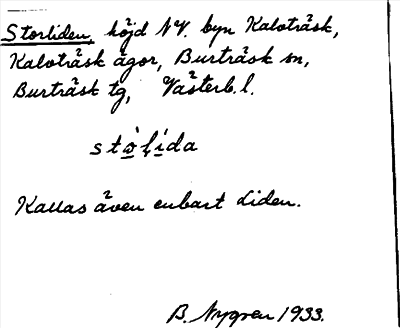 Storliden, höjd NV. byn Kaloträsk,
Kaloträsk ägor, Burträsk sn,
Burträsk tg, Västerb. l.
stò̱ḷi̱da
Kallas även enbart Liden.
B. Nygren 1933.